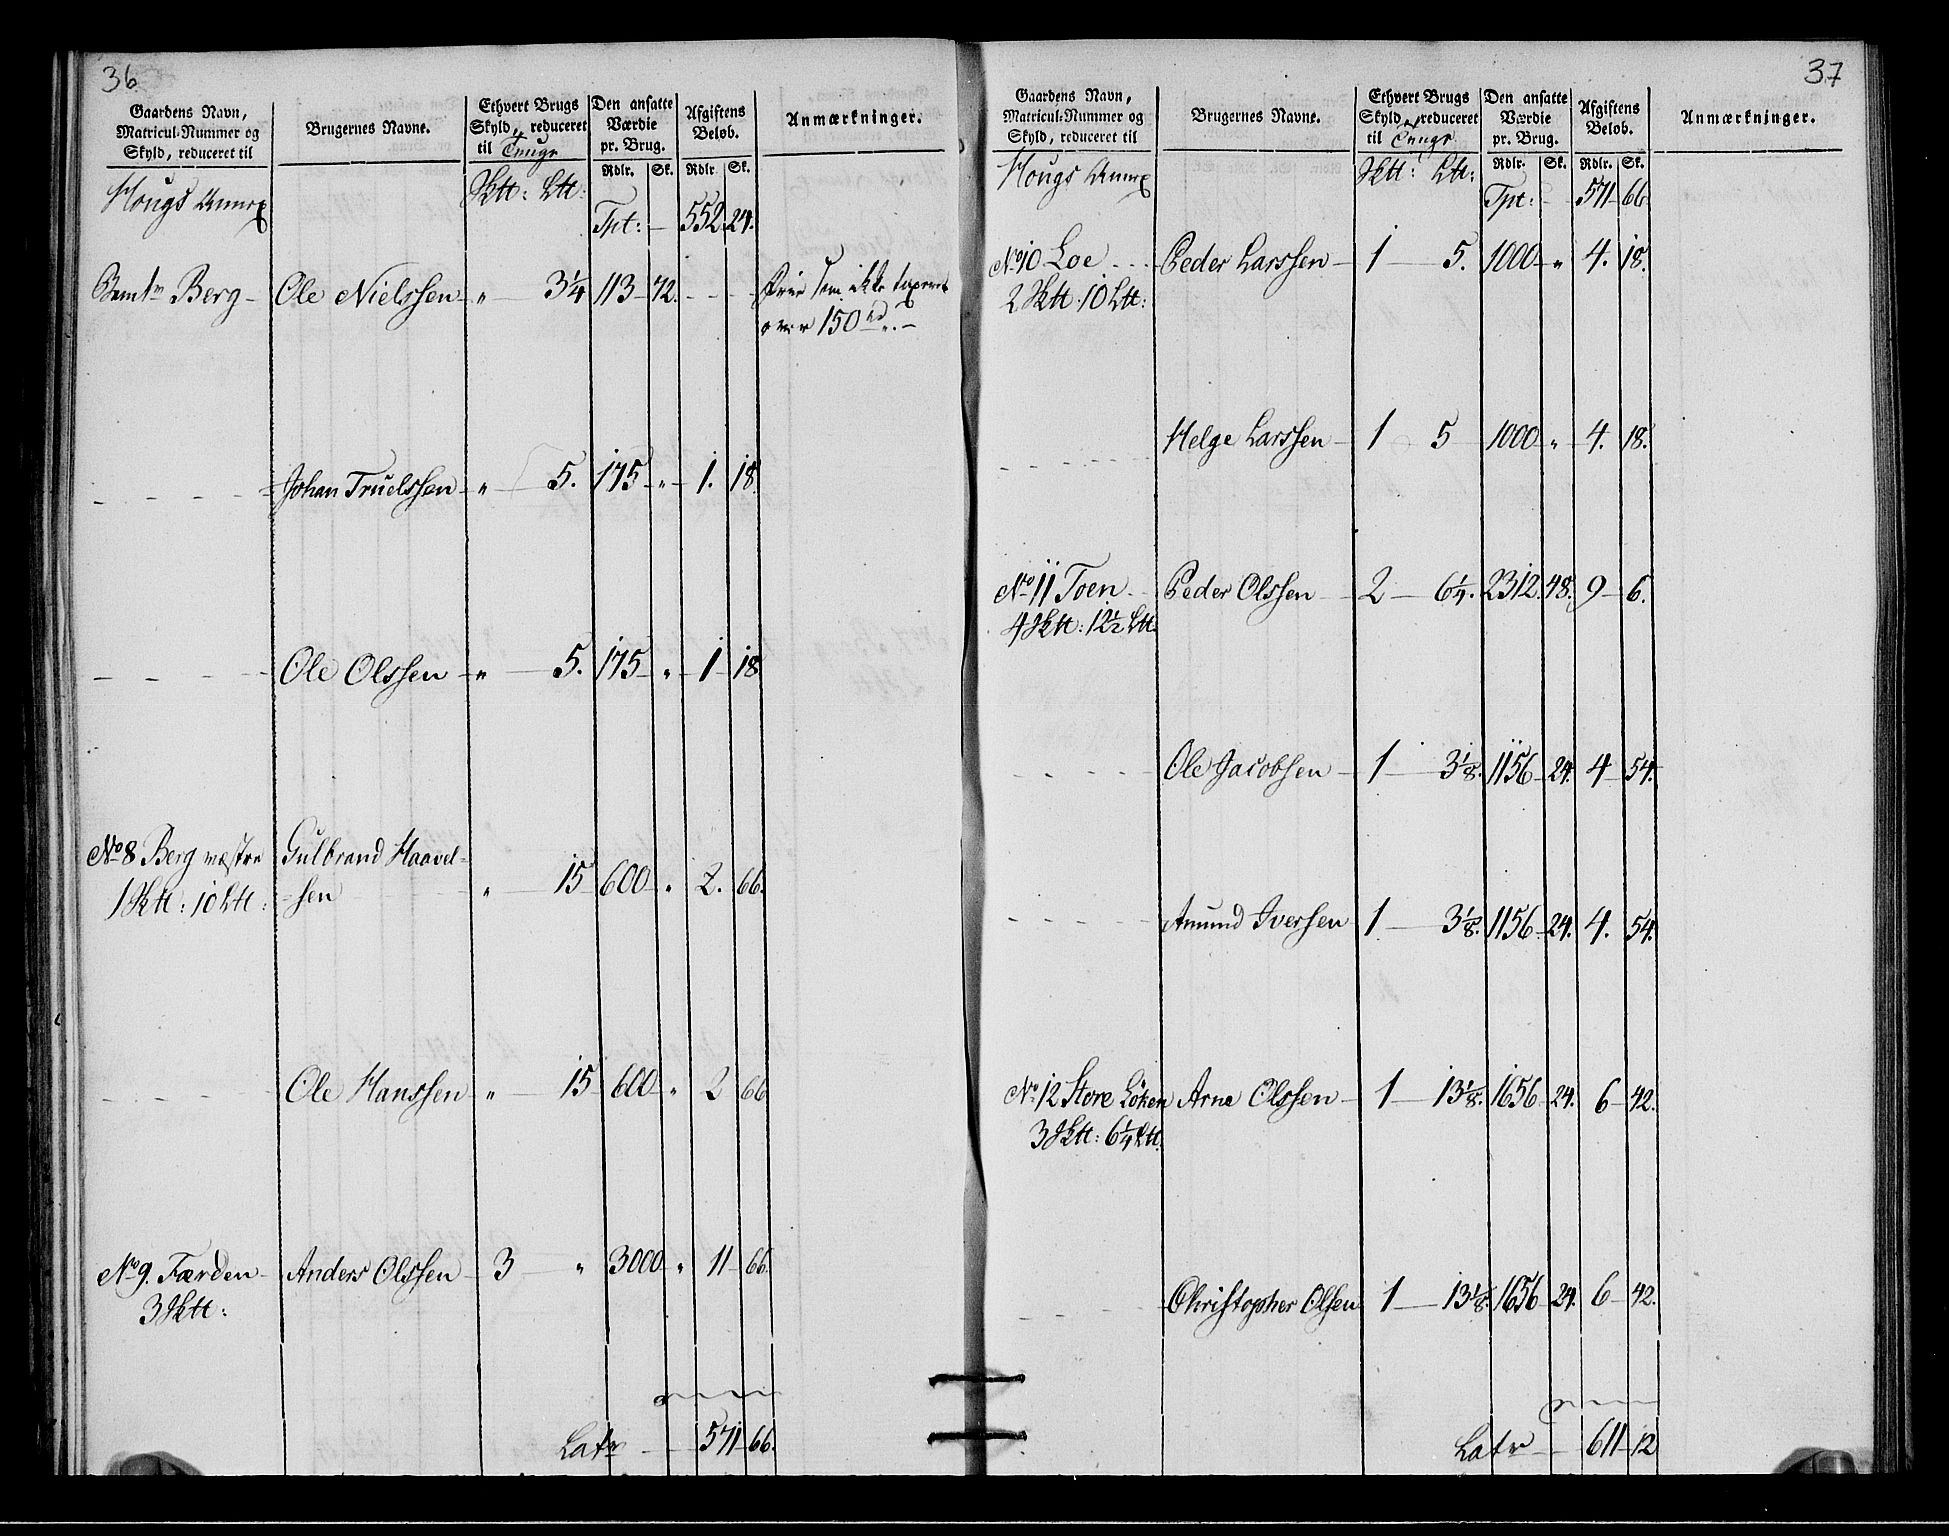 36
Gaardens Navn, Matricul-Nummer og Skyld, reduceret til
Brugernes Navne.
Ethvert Brugs Skyld, reduceret til Tunge
Den ansatte Værdie pr. Brug.
Afgiftens Beløb.
Anmærkninger.
Rdlr. Sk. Rdlr. Sk.
Hougs Annex Sktt: Ltt: Tpt: — 552 24.
Berg — Ole Nielssen — " 3¼ 113 — 72. - - - som ikke taxeret
over 150 rd. —
- - - - Johan Truelssen — " — 5. 175 — " — 1. 18.
- - - - Ole Olssen — " — 5. 175 — " — 1 — 18
No 8 Berg vestre Gulbrand Haavel-
1 Sktt: 10 Ltt: -sen " — 15 600 — " 2. 66.
- - - - Ole Hanssen " — 15 600 — " 2 66
No 9. Færden — Anders Olssen — 3 — " 3000 " 11 — 66.
3 Sktt:
Latr — 571 — 66.
37
Gaardens Navn, Matricul-Nummer og Skyld, reduceret til
Brugernes Navne.
Ethvert Brugs Skyld, reduceret til Tunge
Den ansatte Værdie pr. Brug.
Afgiftens Beløb.
Anmærkninger.
Rdlr. Sk. Rdlr. Sk.
Hougs Annex Sktt: Ltt: Tpt: — 571 — 66.
No 10 Loe - - - Peder Larssen — 1 — 5. 1000 — " 4. 18.
2 Sktt: 10 Ltt:
- - - - Helge Larssen — 1 5 1000 — " — 4. 18.
No 11 Toen - - Peder Olssen — 2 — 6¼. 2312. 48. 9 — 6.
4 Sktt: 12½ Ltt.
- - - - Ole Jacobsen — 1 — 3⅛. 1156 — 24. 4 — 54.
- - - - Amund Iversen — 1 — 3⅛. 1156 — 24. 4. 54.
No 12 Store Löken Arne Olssen — 1 — 13⅛. 1656 — 24. 6 — 42.
3 Sktt: 6¼ Ltt.
- - - - Christopher Olsen 1 — 13⅛. 1656 — 24. 6 — 42.
Latr — 611 — 12